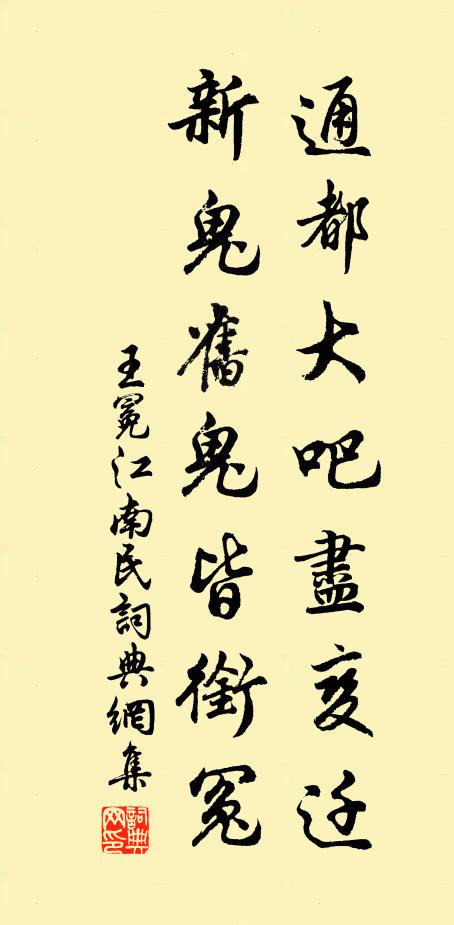 通都大吧盡变迁
新鬼舊鬼皆銜冤
王冕江南民詞典網集
詞典网印